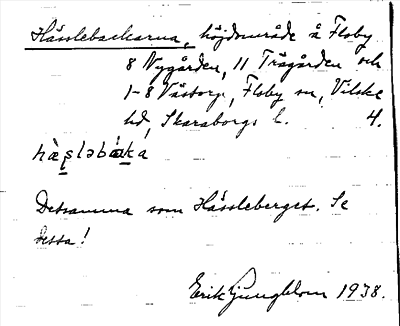 Hässlebackarna, höjdområde å Floby
8 Nygården, 11 Trägården och
1-8 Västorp, Floby sn, Vilske
hd, Skaraborgs l. 4.
hæ̀ʂləbáka
Detsamma som Hässleberget. Se
detta!
Erik Ljungblom 1938.